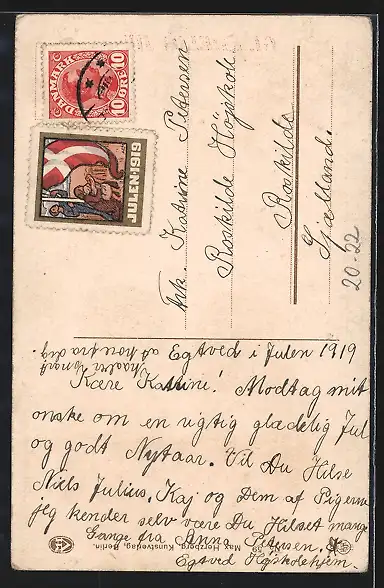 DANMARK
10 ØRE 10
JULEN·1919
Frk. Katrine Petersen
Roskilde Højskole
Roskilde
Sjælland.
20-22
Egtved i Julen 1919
at høre fra dig
Kære Katrine! Modtag mit
ønske om en rigtig glædelig Jul
og godt Nytaar. Vil Du Hilse
Niels Julius. Kaj og Dem af Pigerne
jeg kender selv være Du Hilset mange
Gange fra Anna Petersen.
Egtved Højskolehjem.
Max Herzberg, Kunstverlag, Berlin.